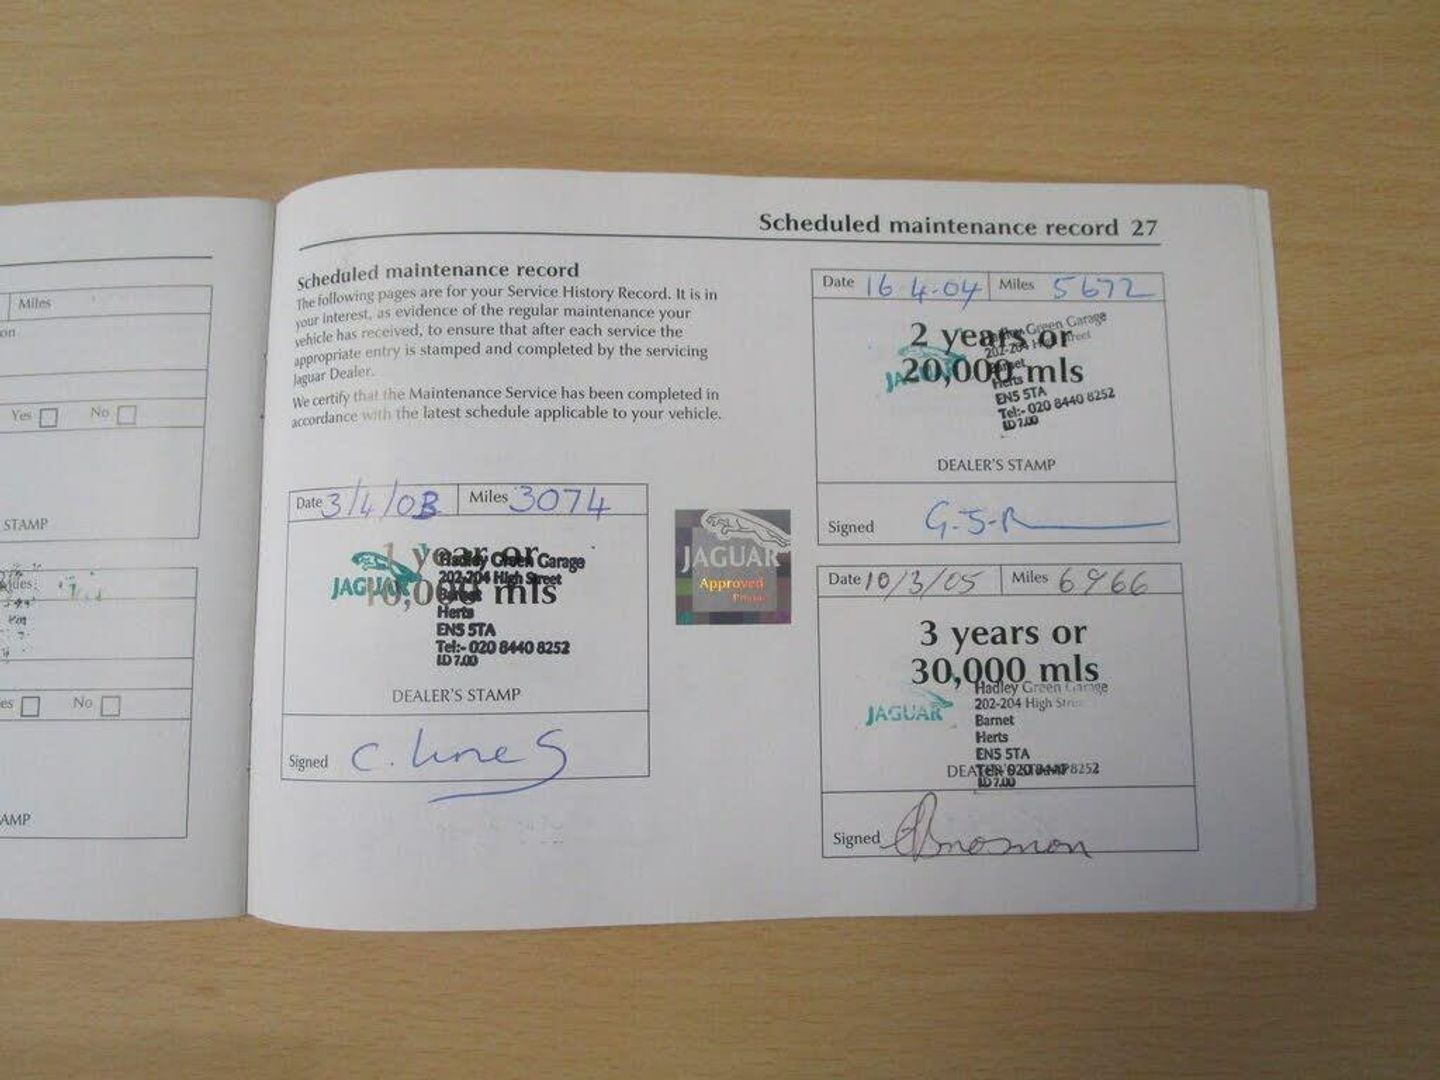 Miles
on
Yes No
STAMP
No
AMP
Scheduled maintenance record 27
Scheduled maintenance record
The following pages are for your Service History Record. It is in
your interest, as evidence of the regular maintenance your
vehicle has received, to ensure that after each service the
appropriate entry is stamped and completed by the servicing
Jaguar Dealer.
We certify that the Maintenance Service has been completed in
accordance with the latest schedule applicable to your vehicle.
Date 3/4/03 Miles 3074
1 year or
10,000 mls
JAGUAR
Hadley Green Garage
202-204 High Street
Barnet
Herts
EN5 5TA
Tel:- 020 8440 8252
LD 7.00
DEALER'S STAMP
Signed C. Lines
JAGUAR
Approved
Date 16.4.04 Miles 5672
2 years or
20,000 mls
JAGUAR
Hadley Green Garage
202-204 High Street
Barnet
Herts
EN5 5TA
Tel:- 020 8440 8252
LD 7.00
DEALER'S STAMP
Signed
Date 10/3/05 Miles 6966
3 years or
30,000 mls
JAGUAR
Hadley Green Garage
202-204 High Street
Barnet
Herts
EN5 5TA
Tel:- 020 8440 8252
LD 7.00
DEALER'S STAMP
Signed